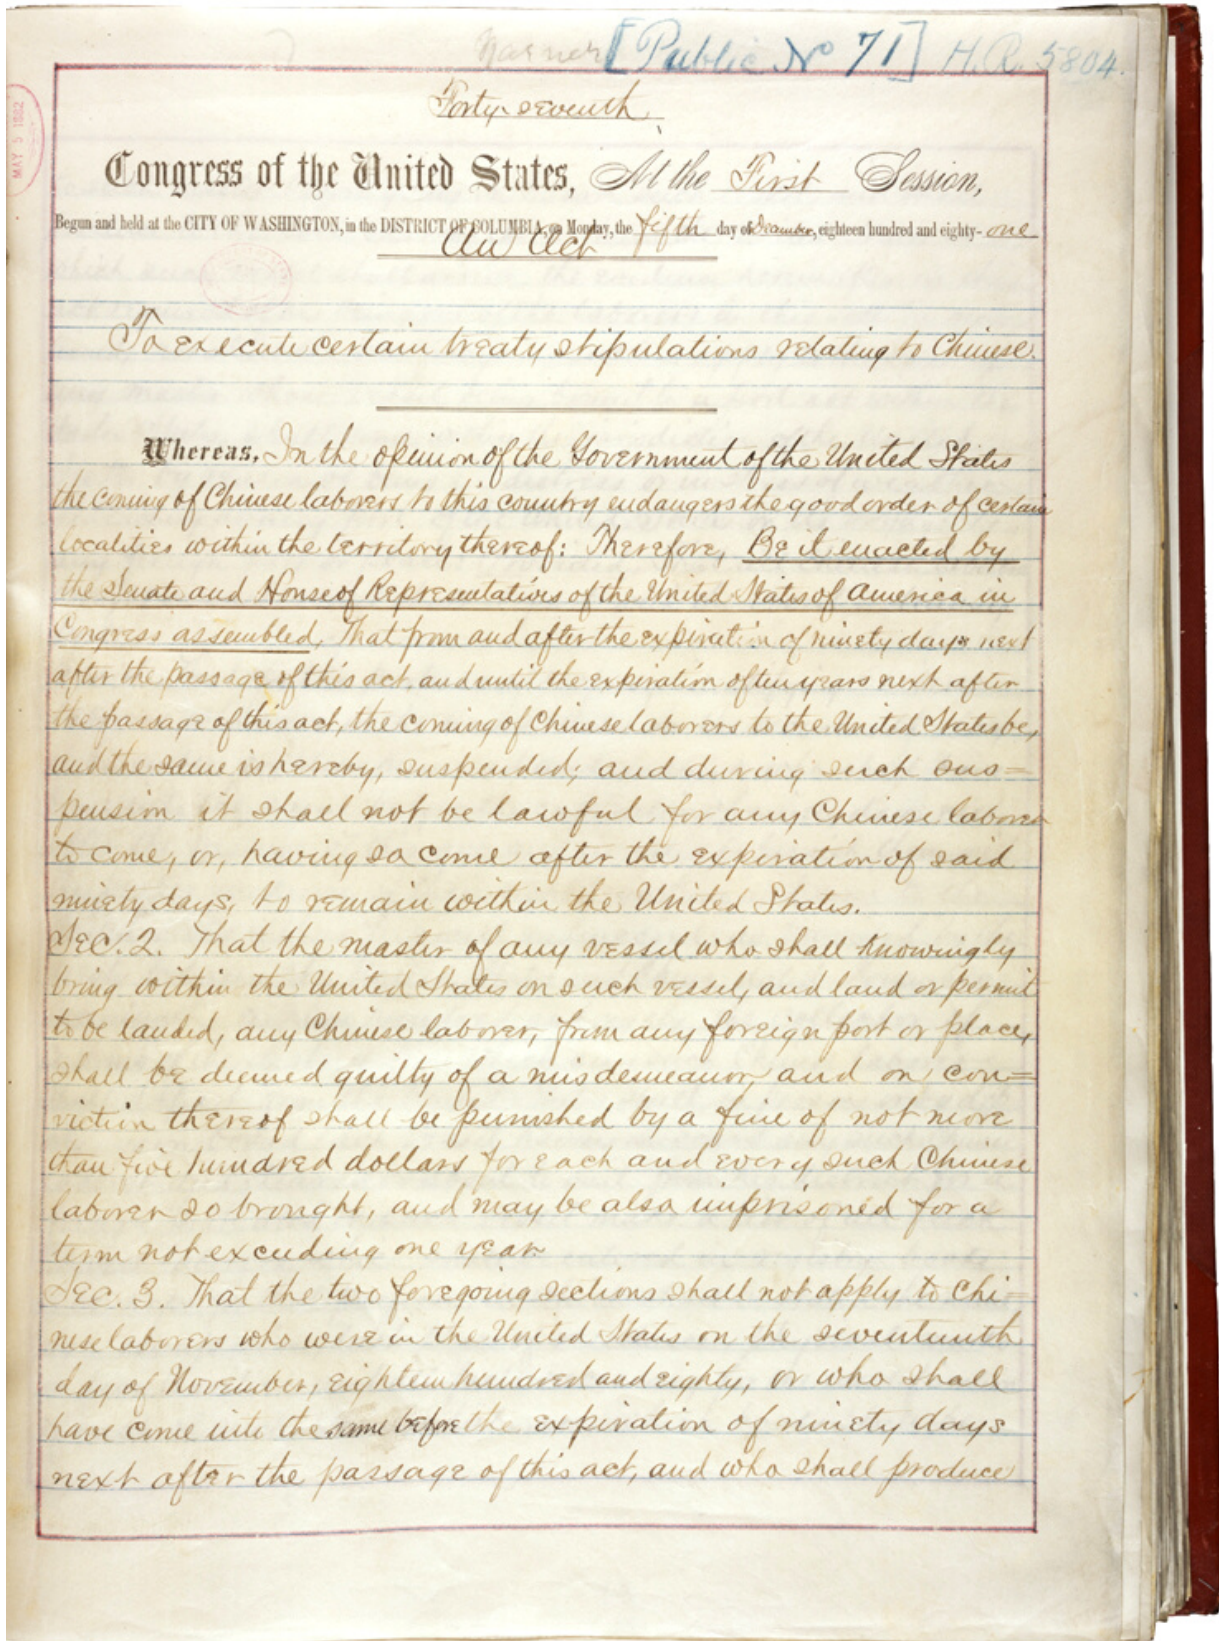 Warner [Public No 71] H.R. 5804.
MAY 5 1882
Forty-seventh
Congress of the United States, At the First Session,
Begun and held at the CITY OF WASHINGTON, in the DISTRICT OF COLUMBIA, on Monday, the fifth day of December, eighteen hundred and eighty-one
An Act
To execute certain treaty stipulations relating to Chinese.
Whereas, In the opinion of the Government of the United States
the coming of Chinese laborers to this country endangers the good order of certain
localities within the territory thereof: Therefore, Be it enacted by
the Senate and House of Representatives of the United States of America in
Congress assembled, That from and after the expiration of ninety days next
after the passage of this act, and until the expiration of ten years next after
the passage of this act, the coming of Chinese laborers to the United States be,
and the same is hereby, suspended; and during such sus=
pension it shall not be lawful for any Chinese laborer
to come, or, having so come after the expiration of said
ninety days, to remain within the United States.
SEC. 2. That the master of any vessel who shall knowingly
bring within the United States on such vessel, and land or permit
to be landed, any Chinese laborer, from any foreign port or place,
shall be deemed guilty of a misdemeanor, and on con=
viction thereof shall be punished by a fine of not more
than five hundred dollars for each and every such Chinese
laborer so brought, and may be also imprisoned for a
term not exceeding one year.
SEC. 3. That the two foregoing sections shall not apply to Chi=
nese laborers who were in the United States on the seventeenth
day of November, eighteen hundred and eighty, or who shall
have come into the same before the expiration of ninety days
next after the passage of this act, and who shall produce